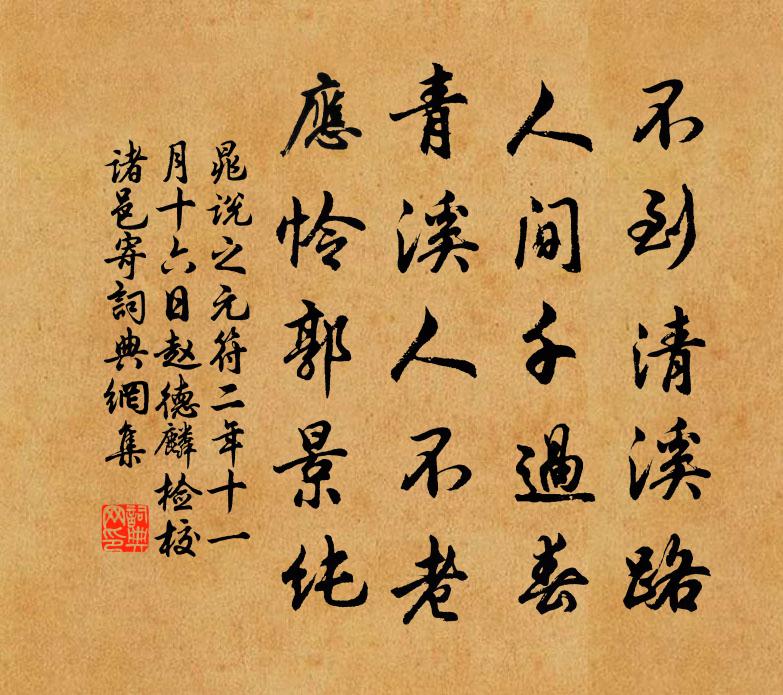 不到清溪路
人间千過春
青溪人不老
應怜郭景纯
晁说之元符二年十一
月十六日赵德麟检校
诸邑寄詞典網集
詞典网印